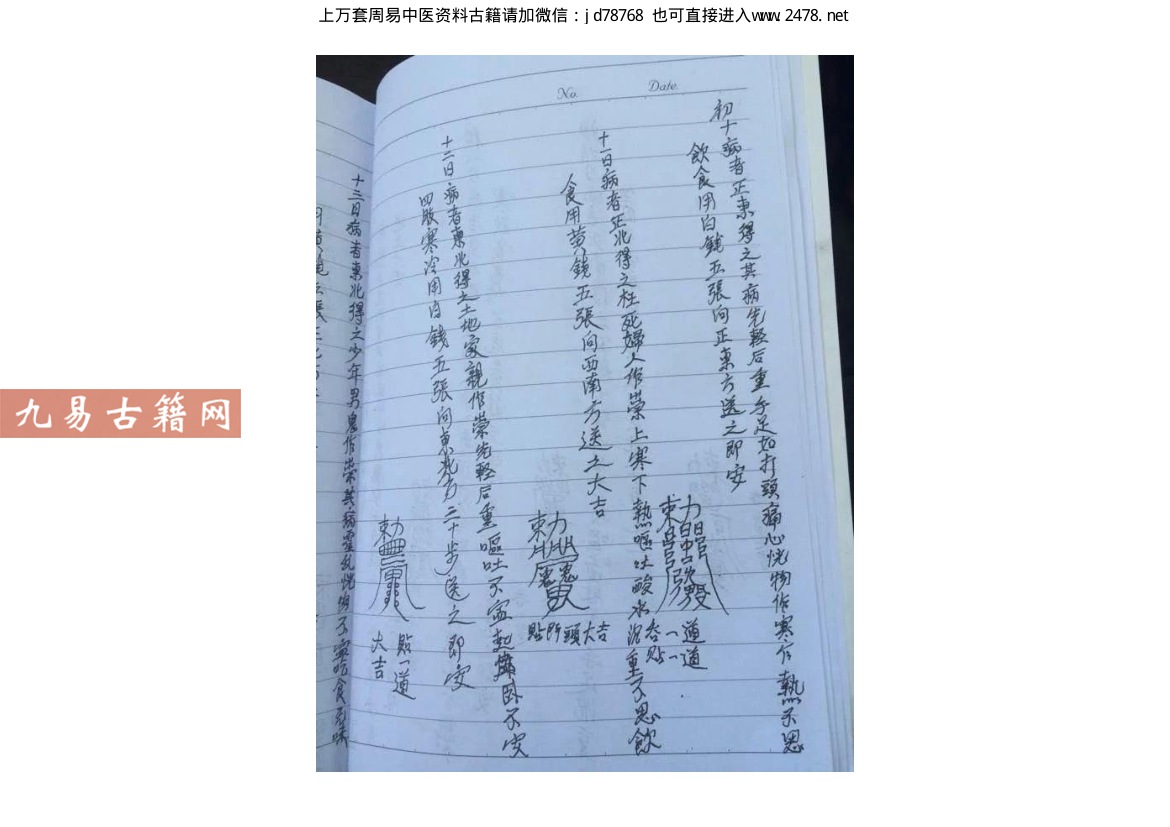 上万套周易中医资料古籍请加微信：jd78768 也可直接进入www.2478.net
九易古籍网
No.
Date.
初十病者正東得之其病先輕后重手足如打頭痛心恍惚作寒乍熱不思
飲食用白錢五張向正東方送之即安
吞一道
貼一道
十一日病者正北得之枉死婦人作祟上寒下熱嘔吐酸水沉重不思飲
食用黄錢五張向西南方送之大吉
貼所頭大吉
十二日病者東北得之土地家親作祟先輕后重嘔吐不寍起卧不安
四肢寒冷用白錢五張向東北方三十步送之即安
貼一道
大吉
十三日病者東北得之少年男鬼作祟其病霍乱恍惚不寍吃食無味